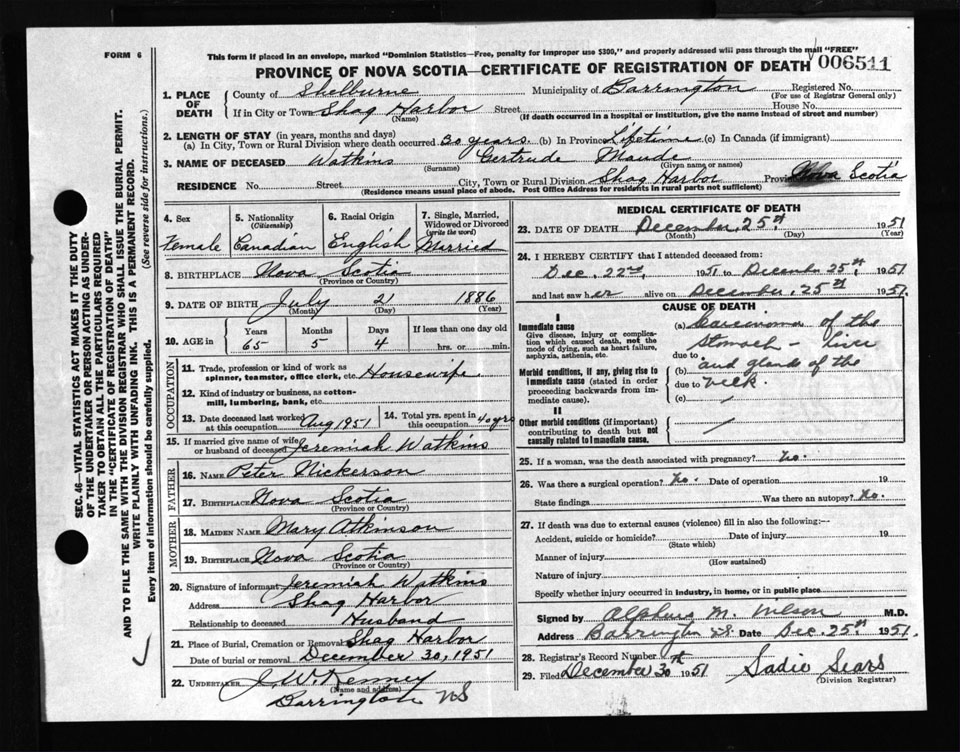 FORM 6
This form if placed in an envelope, marked "Dominion Statistics—Free, penalty for improper use $300," and properly addressed will pass through the mail "FREE"
PROVINCE OF NOVA SCOTIA—CERTIFICATE OF REGISTRATION OF DEATH 006511
1. PLACE OF DEATH
County of Shelburne Municipality of Barrington Registered No.
(For use of Registrar General only)
If in City or Town Shag Harbor Street House No.
(Name) (If death occurred in a hospital or institution, give the name instead of street and number)
2. LENGTH OF STAY (in years, months and days)
(a) In City, Town or Rural Division where death occurred 30 years. (b) In Province Lifetime (c) In Canada (if immigrant)
3. NAME OF DECEASED Watkins Gertrude Maude
(Surname) (Given name or names)
RESIDENCE No. Street City, Town or Rural Division Shag Harbor Province Nova Scotia
(Residence means usual place of abode. Post Office Address for residents in rural parts not sufficient)
4. Sex
Female
5. Nationality
(Citizenship)
Canadian
6. Racial Origin
English
7. Single, Married, Widowed or Divorced
(write the word)
Married
8. BIRTHPLACE Nova Scotia
(Province or Country)
9. DATE OF BIRTH July 21 1886
(Month) (Day) (Year)
10. AGE in
Years Months Days If less than one day old
65 5 4 hrs. or min.
OCCUPATION
11. Trade, profession or kind of work as
spinner, teamster, office clerk, etc. Housewife
12. Kind of industry or business, as cotton-
mill, lumbering, bank, etc.
13. Date deceased last worked
at this occupation Aug 1951
14. Total yrs. spent in
this occupation 40 yrs
15. If married give name of wife
or husband of deceased Jeremiah Watkins
FATHER
16. NAME Peter Nickerson
17. BIRTHPLACE Nova Scotia
(Province or Country)
MOTHER
18. MAIDEN NAME Mary Atkinson
19. BIRTHPLACE Nova Scotia
(Province or Country)
20. Signature of informant Jeremiah Watkins
Address Shag Harbor
Relationship to deceased Husband
21. Place of Burial, Cremation or Removal Shag Harbor
Date of burial or removal December 30, 1951
22. UNDERTAKER J. W. Kenney
(Name and address)
Barrington NS
MEDICAL CERTIFICATE OF DEATH
23. DATE OF DEATH December, 25st 1951
(Month) (Day) (Year)
24. I HEREBY CERTIFY that I attended deceased from:
Dec. 22nd, 1951 to December 25st, 1951
and last saw her alive on December, 25st 1951.
CAUSE OF DEATH
I
Immediate cause
Give disease, injury or complication which caused death, not the mode of dying, such as heart failure, asphyxia, asthenia, etc.
(a) Carcinoma of the
stomach - liver
due to
Morbid conditions, if any, giving rise to immediate cause (stated in order proceeding backwards from immediate cause).
(b) and glands of the
due to neck.
(c) /
II
Other morbid conditions (if important) contributing to death but not causally related to immediate cause. /
25. If a woman, was the death associated with pregnancy? No.
26. Was there a surgical operation? No. Date of operation 19
State findings Was there an autopsy? No.
27. If death was due to external causes (violence) fill in also the following:—
Accident, suicide or homicide? Date of injury 19
(State which)
Manner of injury
(How sustained)
Nature of injury
Specify whether injury occurred in industry, in home, or in public place
Signed by Alpheus M. Wilson M.D.
Address Barrington NS. Date Dec. 25th. 1951.
28. Registrar's Record Number
29. Filed December 30th 1951 Sadie Sears
(Division Registrar)
SEC. 46—VITAL STATISTICS ACT MAKES IT THE DUTY
OF THE UNDERTAKER OR PERSON ACTING AS UNDER-
TAKER TO OBTAIN ALL THE PARTICULARS REQUIRED
IN THE "CERTIFICATE OF REGISTRATION OF DEATH"
AND TO FILE THE SAME WITH THE DIVISION REGISTRAR WHO SHALL ISSUE THE BURIAL PERMIT.
WRITE PLAINLY WITH UNFADING INK. THIS IS A PERMANENT RECORD.
Every item of information should be carefully supplied. (See reverse side for instructions.)